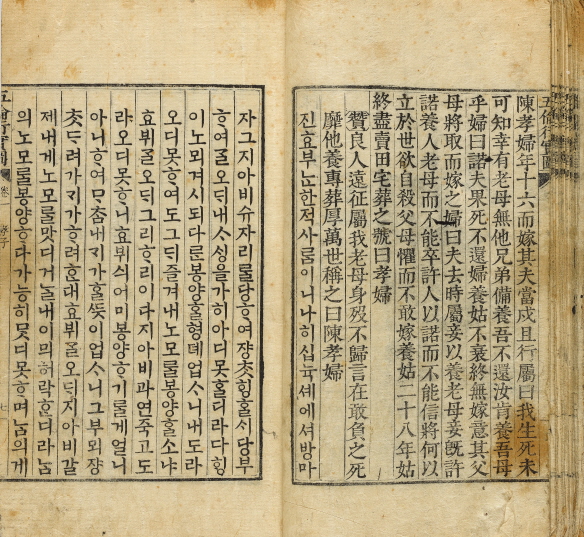 五倫行實圖
陳孝婦年十六而嫁其夫當戍且行屬曰我生死未
可知幸有老母無他兄弟備養吾不還汝肯養吾母
乎婦曰諾夫果死不還婦養姑不衰終無嫁意其父
母將取而嫁之婦曰夫去時屬妾以養老母妾旣許
諾養人老母而不能卒許人以諾而不能信將何以
立於世欲自殺父母懼而不敢嫁養姑二十八年姑
終盡賣田宅葬之號曰孝婦
贊良人遠征屬我老母身歿不歸言在敢負之死
靡他養專葬厚萬世稱之曰陳孝婦
진효부ᄂᆞᆫ한적사ᄅᆞᆷ이니나히십뉵셰에셔방마
자그지아비슈자리ᄅᆞᆯ당ᄒᆞ여쟝ᄎᆞᆺᄒᆡᆼᄒᆞᆯᄉᆡ당부
ᄒᆞ여ᄀᆞᆯ오ᄃᆡ내ᄉᆞᄉᆡᆼ을가히아디못ᄒᆞᆯ디라다ᄒᆡᆼ
이노뫼겨시되다ᄅᆞᆫ봉양ᄒᆞᆯ형뎨업ᄉᆞ니내도라
오디못ᄒᆞ여도그ᄃᆡ즐겨내노모ᄅᆞᆯ봉양ᄒᆞᆯ소냐
효뷔ᄀᆞᆯ오ᄃᆡ그리ᄒᆞ리이다지아비과연죽고도
라오디못ᄒᆞ니효뷔싀어미봉양ᄒᆞ기ᄅᆞᆯ게얼니
아니ᄒᆞ여ᄆᆞᄎᆞᆷ내ᄀᆡ가ᄒᆞᆯᄯᅳᆺ이업ᄉᆞ니그부뫼쟝
ᄎᆞᆺᄃᆞ려가ᄀᆡ가ᄒᆞ려ᄒᆞᆫ대효뷔ᄀᆞᆯ오ᄃᆡ지아비갈
제내게노모ᄅᆞᆯ맛디거ᄂᆞᆯ내이믜허락ᄒᆞᆫ디라ᄂᆞᆷ
의노모ᄅᆞᆯ봉양ᄒᆞ다가능히ᄆᆞᆺ디못ᄒᆞ며ᄂᆞᆷ의게
五倫行實圖 卷一 孝子 七